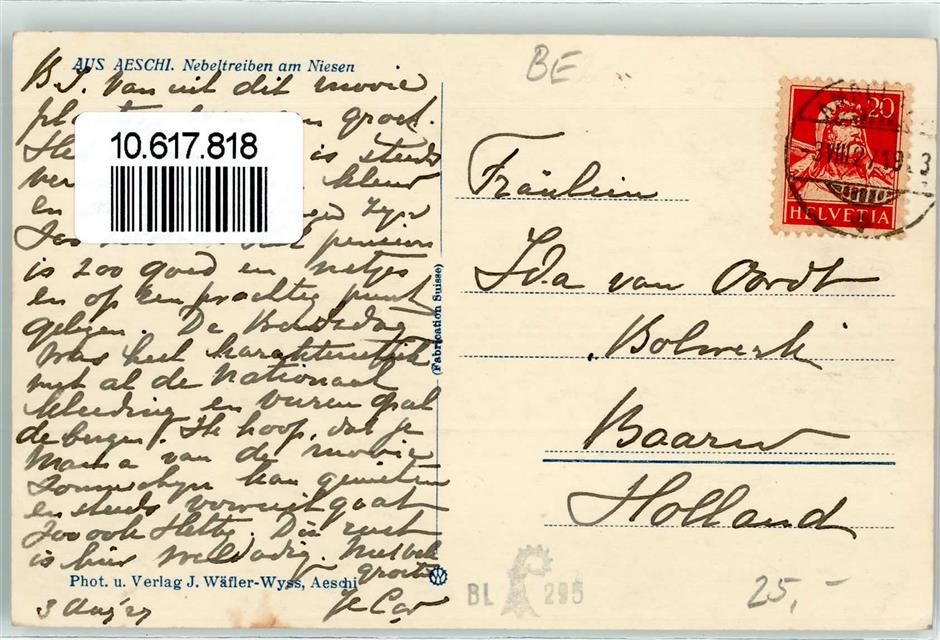 AUS AESCHI. Nebeltreiben am Niesen
B.I. Van uit dit mooie
groet.
10.617.818
is steeds
ver kleur
en
pension
is zoo goed en netjes
en op een prachtig punt
gelegen. De Bondsdag
was heel karakteristiek
met al de nationaal
kleeding en vuren op al
de bergen. Ik hoop, dat je
Mama van de mooie
zonneschijn kan genieten
en steeds vooruit gaat
zoo ook Hetty. De rust
is hier weldadig. Met veel
groeten
Phot. u. Verlag J. Wäfler-Wyss, Aeschi
3 Aug '27
(Fabrication Suisse)
BE
20
HELVETIA
-3.VIII.27.19
Fräulein
Ida van Oordt
Bolwerk
Baarn
Holland
BL 295
25,-